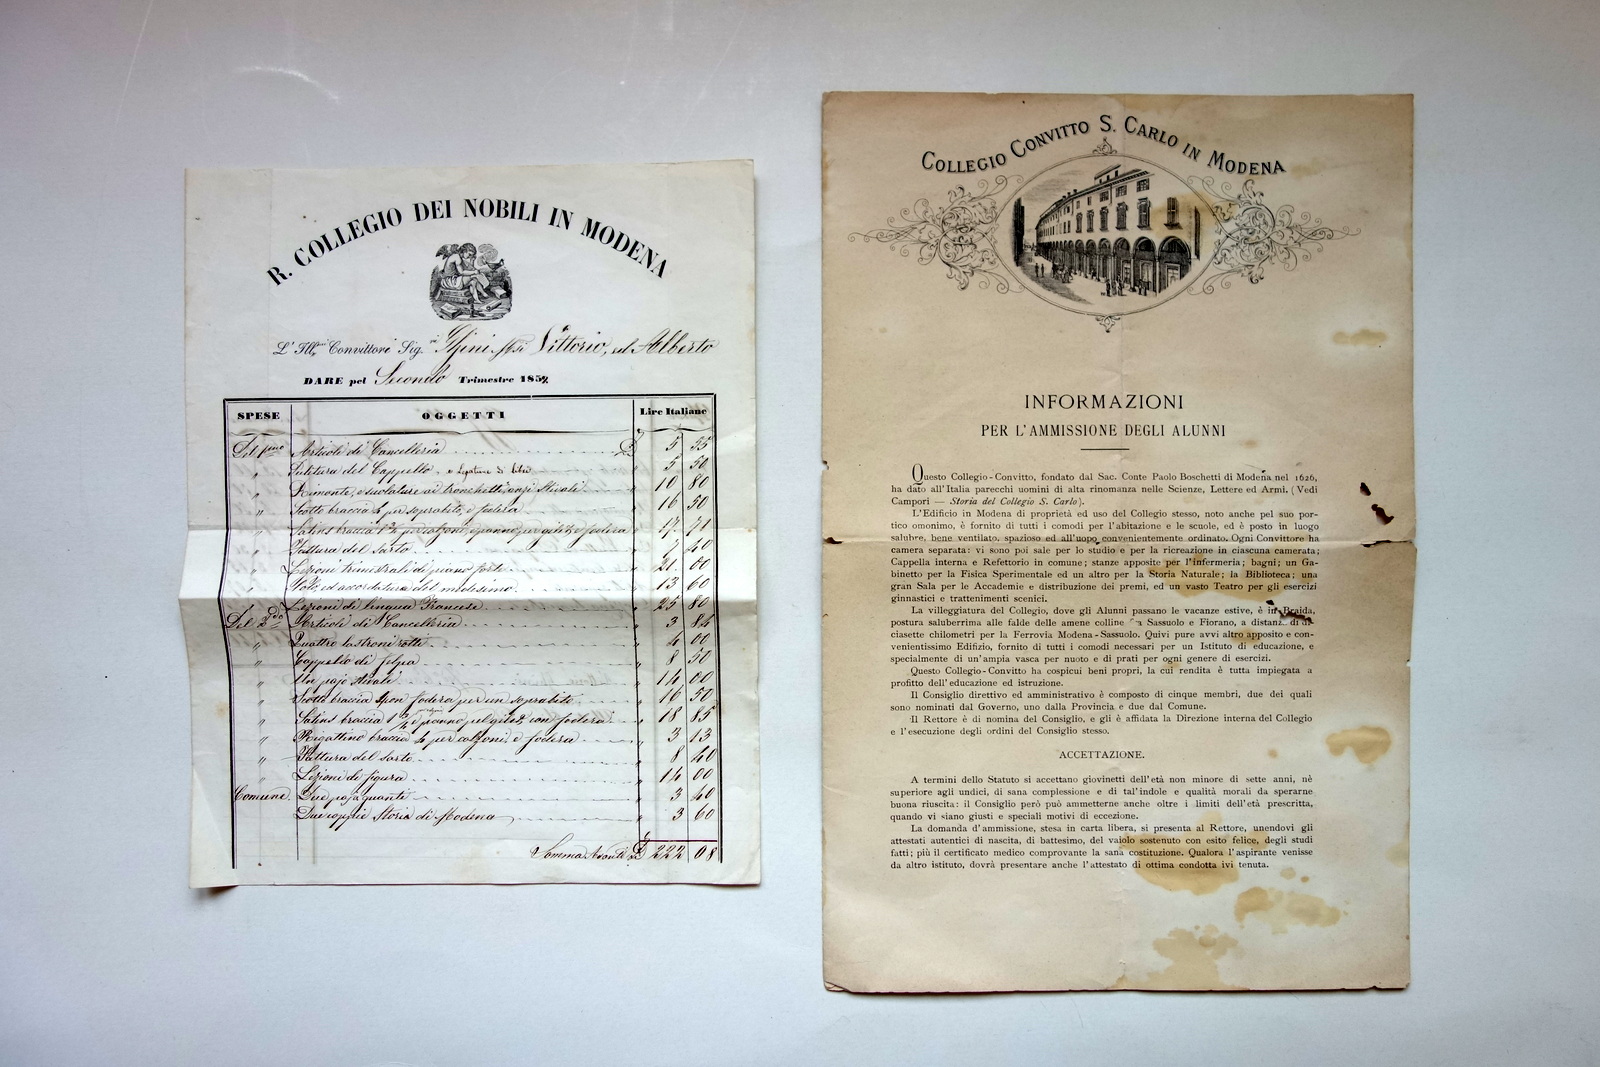 R. COLLEGIO DEI NOBILI IN MODENA
L' Ill.mo Convittore Sig. Vittorio, ed Alberto
DARE pel Secondo Trimestre 185
SPESE OGGETTI Lire Italiane
Del pmo Articoli di Cancelleria 5 35
" del Cappello 5 50
" Rimonte, e suolature ai tronchetti, anzi Stivali 10 80
" Scotto braccia 4 per soprabito, e fodera 16 50
" Satins braccia per calzoni, e panno per gilet e fodera 17 71
" Fattura del sarto 7 40
" Lezioni trimestrali di piano forte 21 00
" Nolo, ed accordatura del medesimo 13 60
" Lezioni di lingua Francese 25 80
Del 2do Articoli di Cancelleria 3 84
" Quattro lastroni rotti 4 00
" Cappello di felpa 8 50
" Un pajo stivali 14 00
" Scotto braccia 4 con fodera per un soprabito 16 50
" Satins braccia 1 3/4 e panno pel gilet con fodera 18 85
" Rigattino braccia 4 per calzoni, e fodera 3 13
" Fattura del sarto 8 40
" Lezioni di figura 14 00
Comune Due paja guanti 3 40
Due copie Storia di Modena 3 60
Somma Avanti 222 08
COLLEGIO CONVITTO S. CARLO IN MODENA
INFORMAZIONI
PER L'AMMISSIONE DEGLI ALUNNI
Questo Collegio-Convitto, fondato dal Sac. Conte Paolo Boschetti di Modena nel 1626,
ha dato all'Italia parecchi uomini di alta rinomanza nelle Scienze, Lettere ed Armi. (Vedi
Campori — Storia del Collegio S. Carlo).
L'Edificio in Modena di proprietà ed uso del Collegio stesso, noto anche pel suo por-
tico omonimo, è fornito di tutti i comodi per l'abitazione e le scuole, ed è posto in luogo
salubre, bene ventilato, spazioso ed all'uopo convenientemente ordinato. Ogni Convittore ha
camera separata: vi sono poi sale per lo studio e per la ricreazione in ciascuna camerata;
Cappella interna e Refettorio in comune; stanze apposite per l'infermeria; bagni; un Ga-
binetto per la Fisica Sperimentale ed un altro per la Storia Naturale; la Biblioteca; una
gran Sala per le Accademie e distribuzione dei premi, ed un vasto Teatro per gli esercizi
ginnastici e trattenimenti scenici.
La villeggiatura del Collegio, dove gli Alunni passano le vacanze estive, è in Braida,
postura saluberrima alle falde delle amene colline Sassuolo e Fiorano, a distanza di di-
ciasette chilometri per la Ferrovia Modena-Sassuolo. Quivi pure avvi altro apposito e con-
venientissimo Edifizio, fornito di tutti i comodi necessari per un Istituto di educazione, e
specialmente di un'ampia vasca per nuoto e di prati per ogni genere di esercizi.
Questo Collegio-Convitto ha cospicui beni propri, la cui rendita è tutta impiegata a
profitto dell'educazione ed istruzione.
Il Consiglio direttivo ed amministrativo è composto di cinque membri, due dei quali
sono nominati dal Governo, uno dalla Provincia e due dal Comune.
Il Rettore è di nomina del Consiglio, e gli è affidata la Direzione interna del Collegio
e l'esecuzione degli ordini del Consiglio stesso.
ACCETTAZIONE.
A termini dello Statuto si accettano giovinetti dell'età non minore di sette anni, nè
superiore agli undici, di sana complessione e di tal'indole e qualità morali da sperarne
buona riuscita: il Consiglio però può ammetterne anche oltre i limiti dell'età prescritta,
quando vi siano giusti e speciali motivi di eccezione.
La domanda d'ammissione, stesa in carta libera, si presenta al Rettore, unendovi gli
attestati autentici di nascita, di battesimo, del vaiolo sostenuto con esito felice, degli studi
fatti; più il certificato medico comprovante la sana costituzione. Qualora l'aspirante venisse
da altro istituto, dovrà presentare anche l'attestato di ottima condotta ivi tenuta.